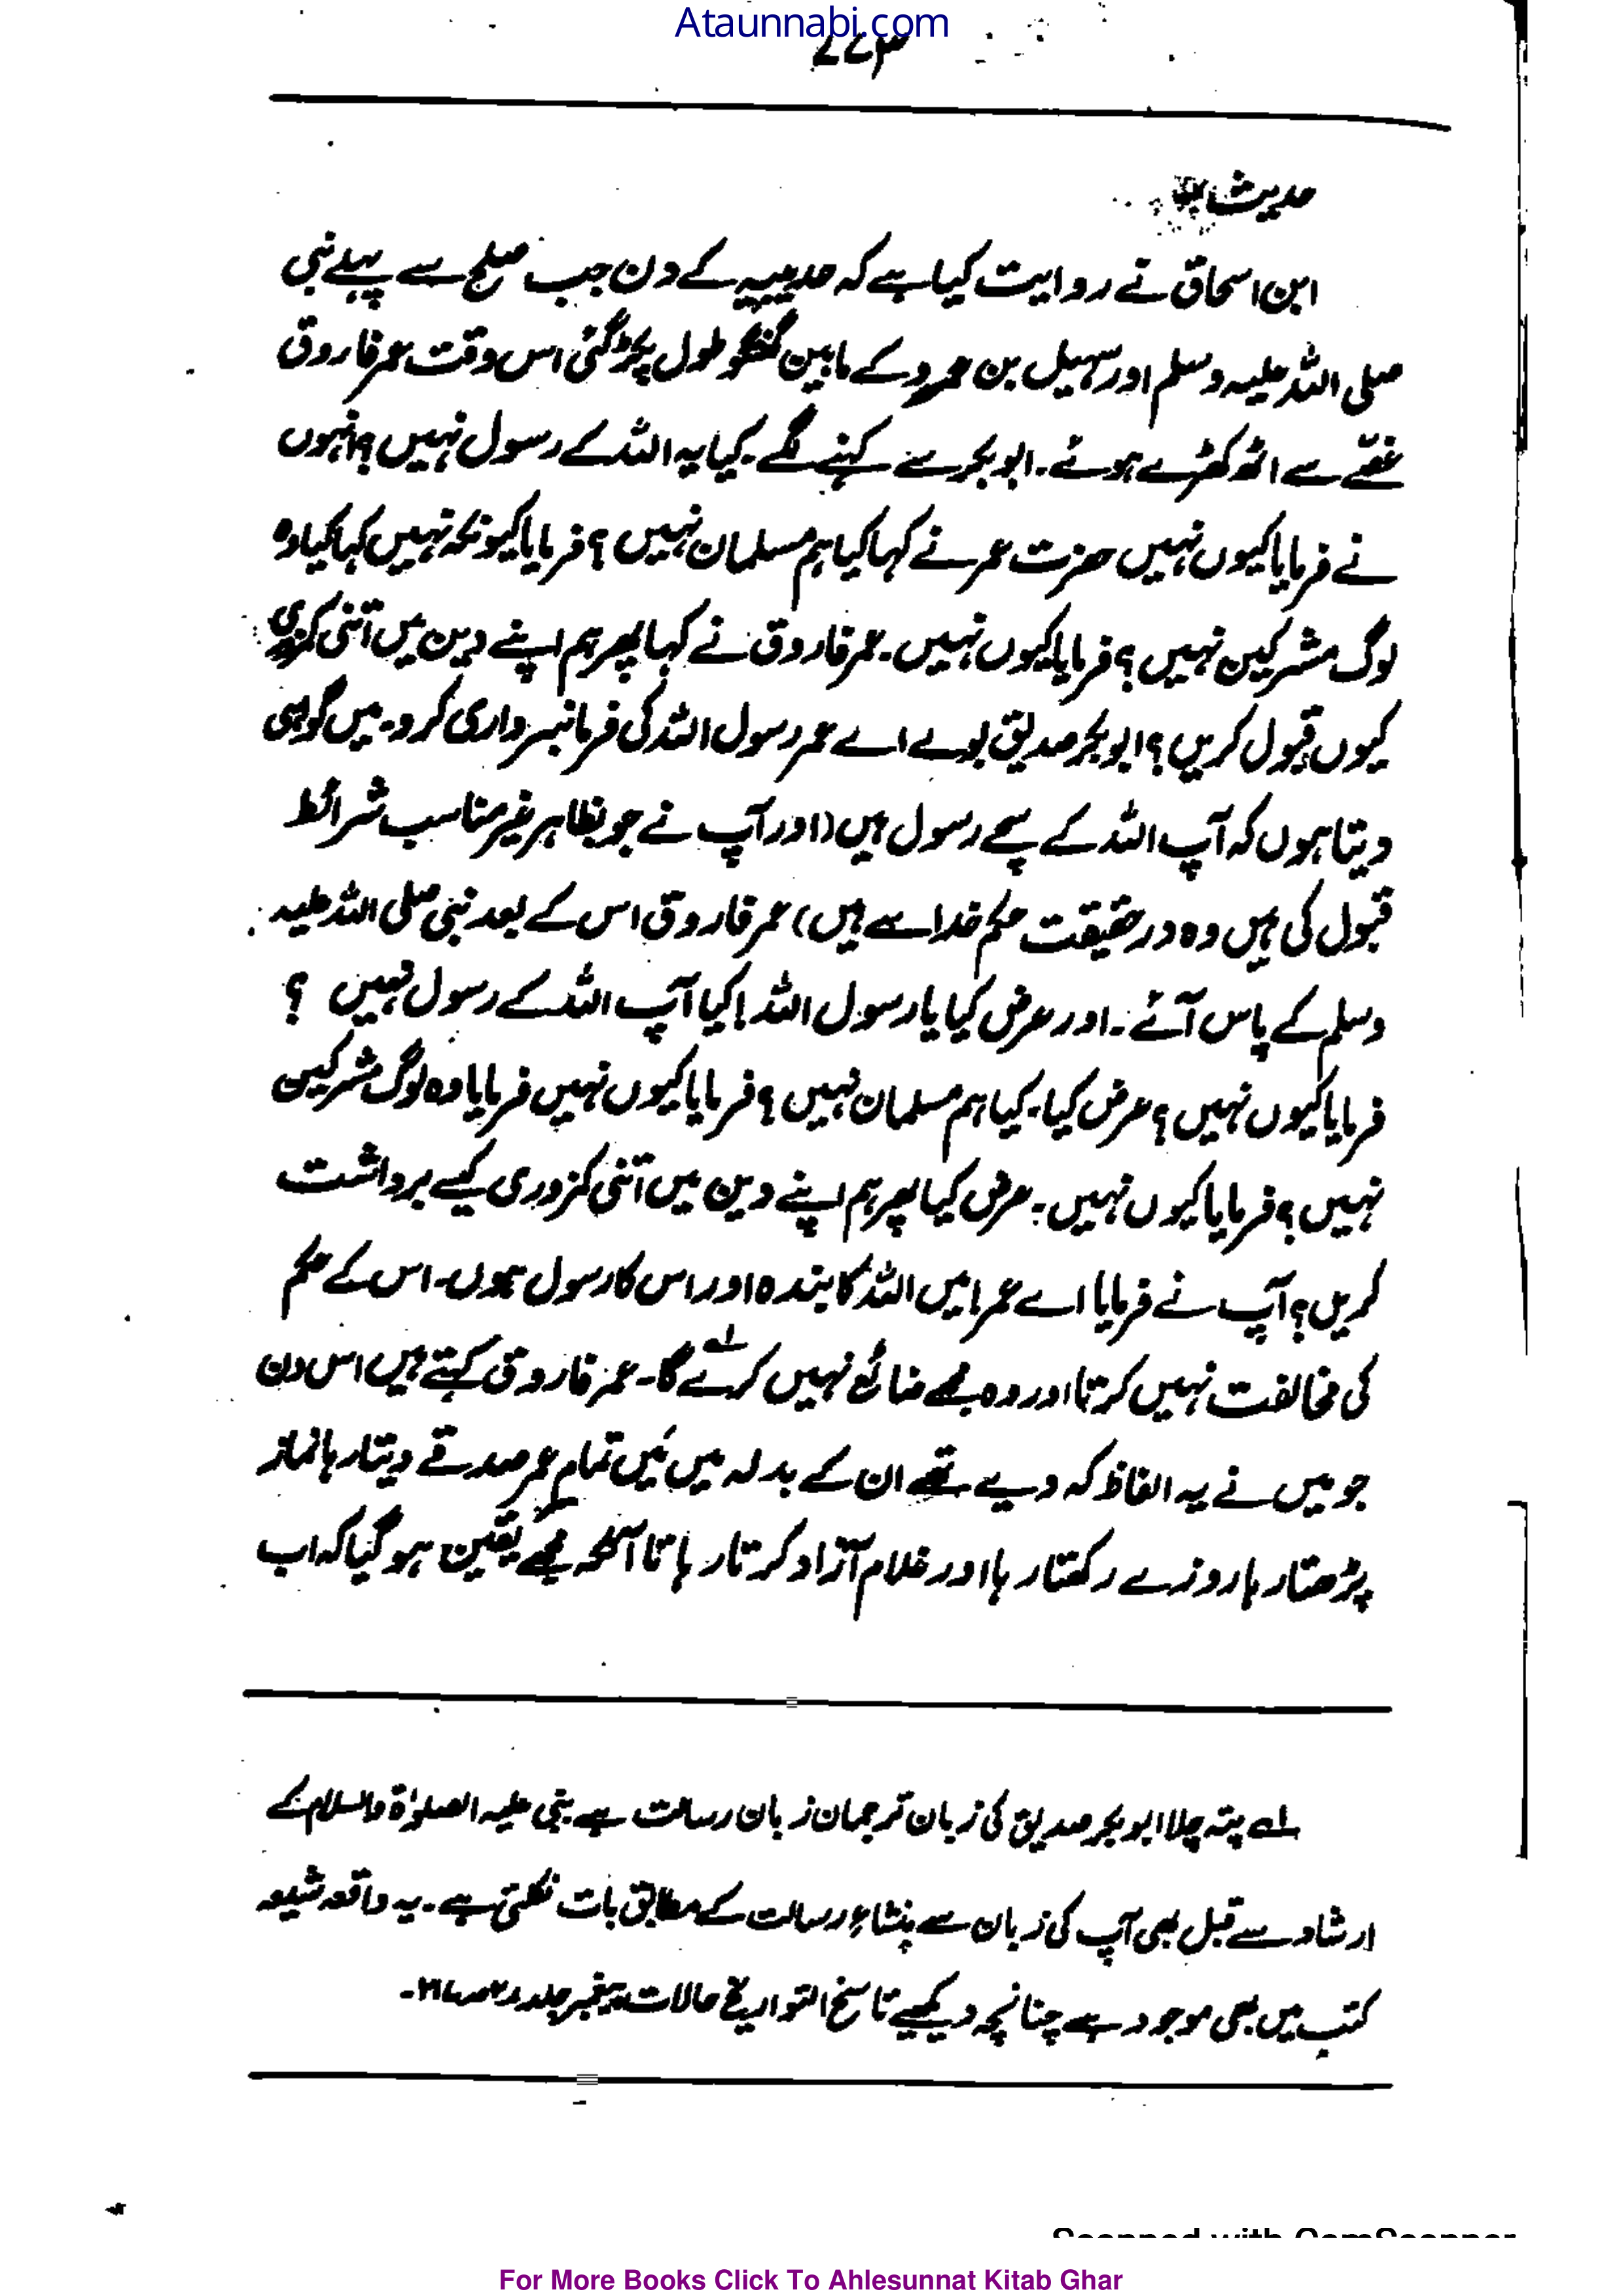 Ataunnabi.com
۷۷۳
حدیث
ابن اسحاق نے روایت کیا ہے کہ حدیبیہ کے دن جب صلح سے پہلے نبی
صلی اللہ علیہ وسلم اور سہیل بن عمرو کے مابین گفتگو طول پکڑ گئی اس وقت عمر فاروق
غصّے سے اٹھ کھڑے ہوئے۔ ابوبکر سے کہنے لگے۔ کیا یہ اللہ کے رسول نہیں؟ انہوں
نے فرمایا کیوں نہیں حضرت عمر نے کہا کیا ہم مسلمان نہیں؟ فرمایا کیونکہ نہیں کہا کیا وہ
لوگ مشرکین نہیں؟ فرمایا کیوں نہیں۔ عمر فاروق نے کہا پھر ہم اپنے دین میں اتنی کمزوری
کیوں قبول کریں؟ ابوبکر صدیق بولے اے عمر رسول اللہ کی فرمانبرداری کرو۔ میں گواہی
دیتا ہوں کہ آپ اللہ کے سچے رسول ہیں (اور آپ نے جو بظاہر غیر مناسب شرائط
قبول کی ہیں وہ درحقیقت حکم خدا سے ہیں) عمر فاروق اس کے بعد نبی صلی اللہ علیہ
وسلم کے پاس آئے۔ اور عرض کیا یا رسول اللہ! کیا آپ اللہ کے رسول نہیں ؟
فرمایا کیوں نہیں؟ عرض کیا۔ کیا ہم مسلمان نہیں؟ فرمایا کیوں نہیں فرمایا وہ لوگ مشرکین
نہیں؟ فرمایا کیوں نہیں۔ عرض کیا پھر ہم اپنے دین میں اتنی کمزوری کیسے برداشت
کریں؟ آپ نے فرمایا اے عمر! میں اللہ کا بندہ اور اس کا رسول ہوں۔ اس کے حکم
کی مخالفت نہیں کرتا اور وہ مجھے ضائع نہیں کرے گا۔ لے عمر فاروق کہتے ہیں اس دن
جو میں نے یہ الفاظ کہہ دیے تھے ان کے بدلہ میں مَیں تمام عمر صدقے دیتا رہا نماز
پڑھتا رہا روزے رکھتا رہا اور غلام آزاد کرتا رہا تا آنکہ مجھے یقین ہو گیا کہ اب
لے پتہ چلا ابوبکر صدیق کی زبان ترجمان زبان رسالت ہے نبی علیہ الصلوٰۃ والسلام کے
ارشاد سے قبل بھی آپ کی زبان سے منشاءِ رسالت کے مطابق بات نکلتی ہے۔ یہ واقعہ شیعہ
کتب میں بھی موجود ہے چنانچہ دیکھیے ناسخ التواریخ حالات پیغمبر جلد
Scanned with CamScanner
For More Books Click To Ahlesunnat Kitab Ghar